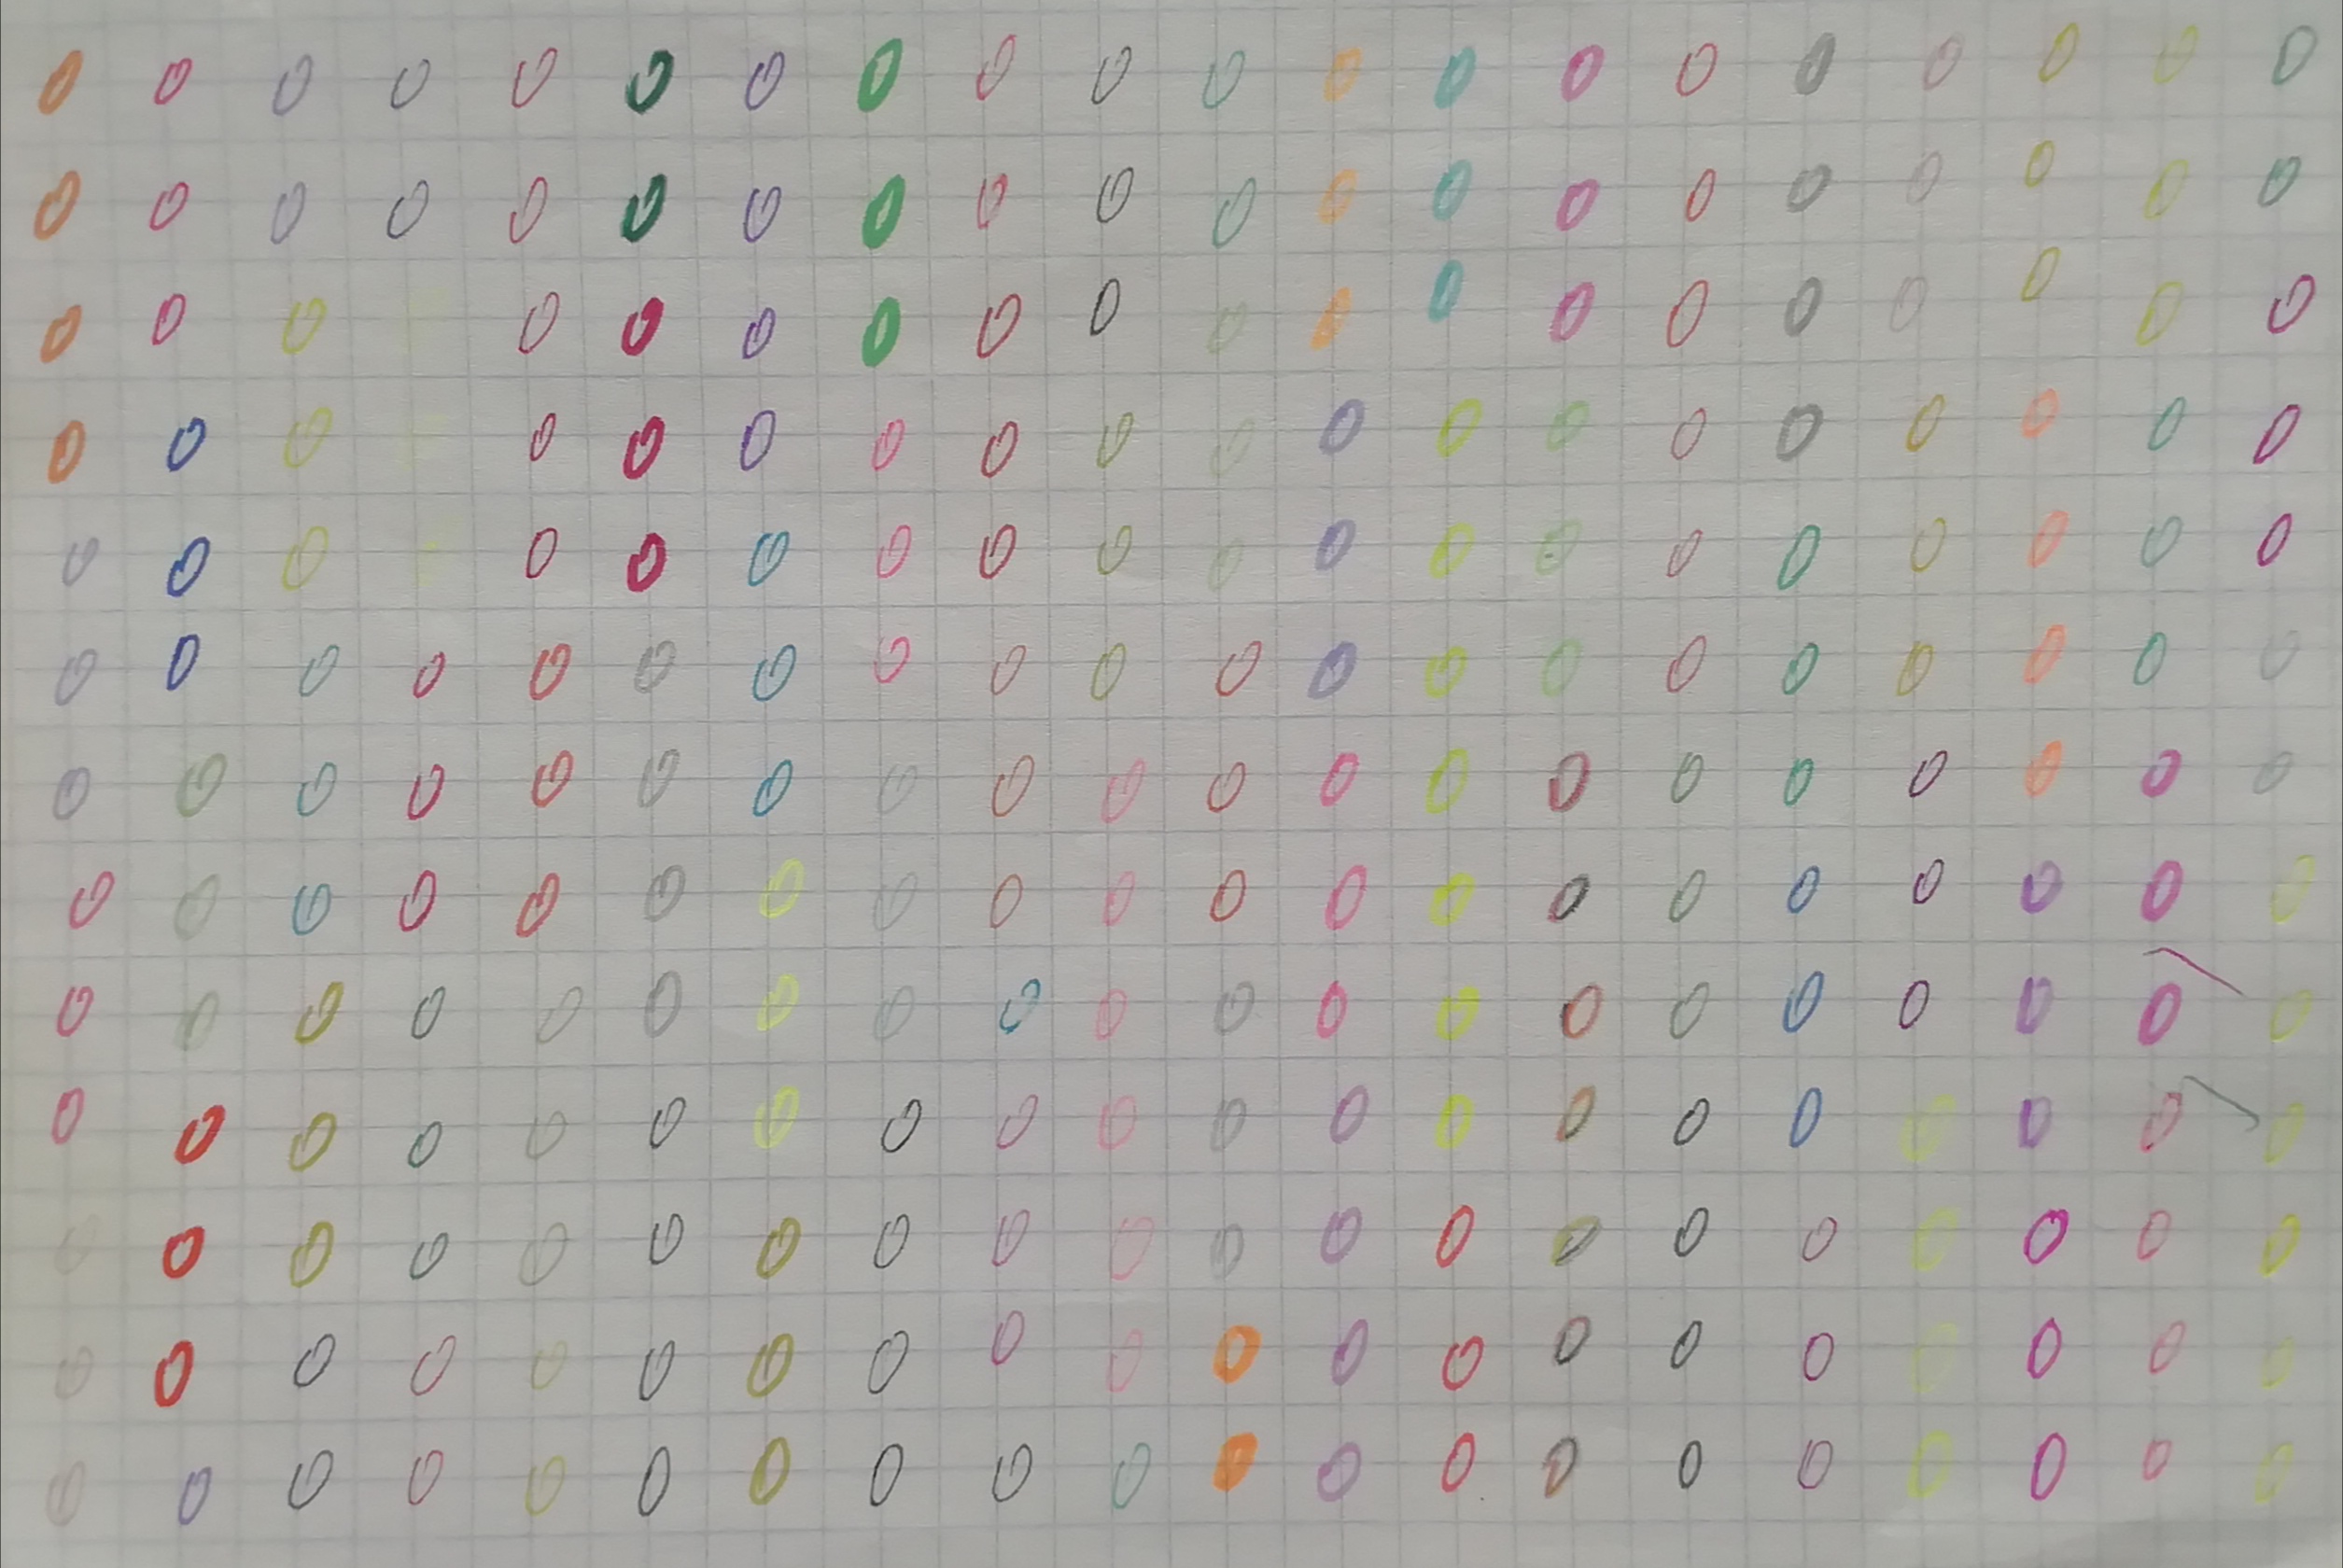 0 0 0 0 0 0 0 0 0 0 0 0 0 0 0 0 0 0 0 0
0 0 0 0 0 0 0 0 0 0 0 0 0 0 0 0 0 0 0 0
0 0 0 0 0 0 0 0 0 0 0 0 0 0 0 0 0 0 0
0 0 0 0 0 0 0 0 0 0 0 0 0 0 0 0 0 0 0
0 0 0 0 0 0 0 0 0 0 0 0 0 0 0 0 0 0 0
0 0 0 0 0 0 0 0 0 0 0 0 0 0 0 0 0 0 0 0
0 0 0 0 0 0 0 0 0 0 0 0 0 0 0 0 0 0 0 0
0 0 0 0 0 0 0 0 0 0 0 0 0 0 0 0 0 0 0 0
0 0 0 0 0 0 0 0 0 0 0 0 0 0 0 0 0 0 0 0
0 0 0 0 0 0 0 0 0 0 0 0 0 0 0 0 0 0 0 0
0 0 0 0 0 0 0 0 0 0 0 0 0 0 0 0 0 0 0 0
0 0 0 0 0 0 0 0 0 0 0 0 0 0 0 0 0 0 0 0
0 0 0 0 0 0 0 0 0 0 0 0 0 0 0 0 0 0 0 0